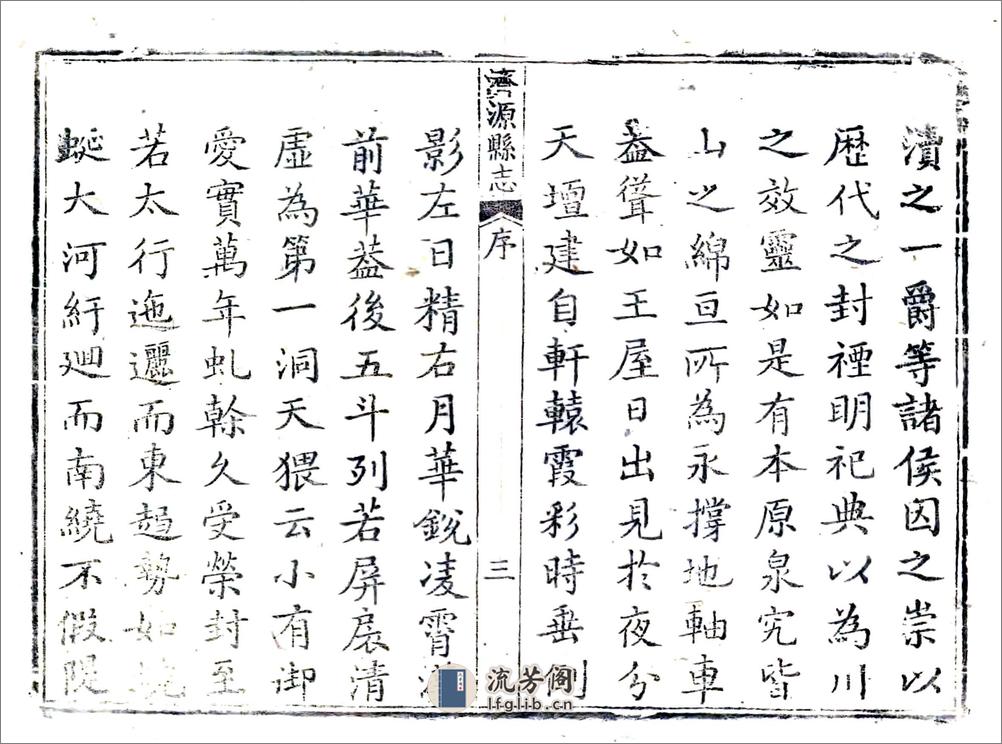 瀆之一爵等諸侯因之崇以
歷代之封禋明祀典以為川
之效靈如是有本原泉究皆
山之綿亘所為永撐地軸車
葢聳如王屋日出見於夜分
天壇建自軒轅霞彩時垂則
濟源縣志
序
三
影左日精右月華銳凌霄
前華葢後五斗列若屏扆清
虛為第一洞天猥云小有御
愛實萬年虬幹久受榮封至
若太行迤邐而東趨勢如
蜒大河紆廻而南繞不假隄
流芳阁
lfglib.cn